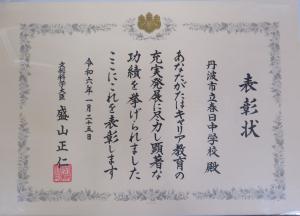 表彰状
丹波市立春日中学校 殿
あなたがたはキャリア教育の
充実発展に尽力し顕著な
功績を挙げられました
ここにこれを表彰します
令和六年一月二十五日
文部科学大臣 盛山正仁